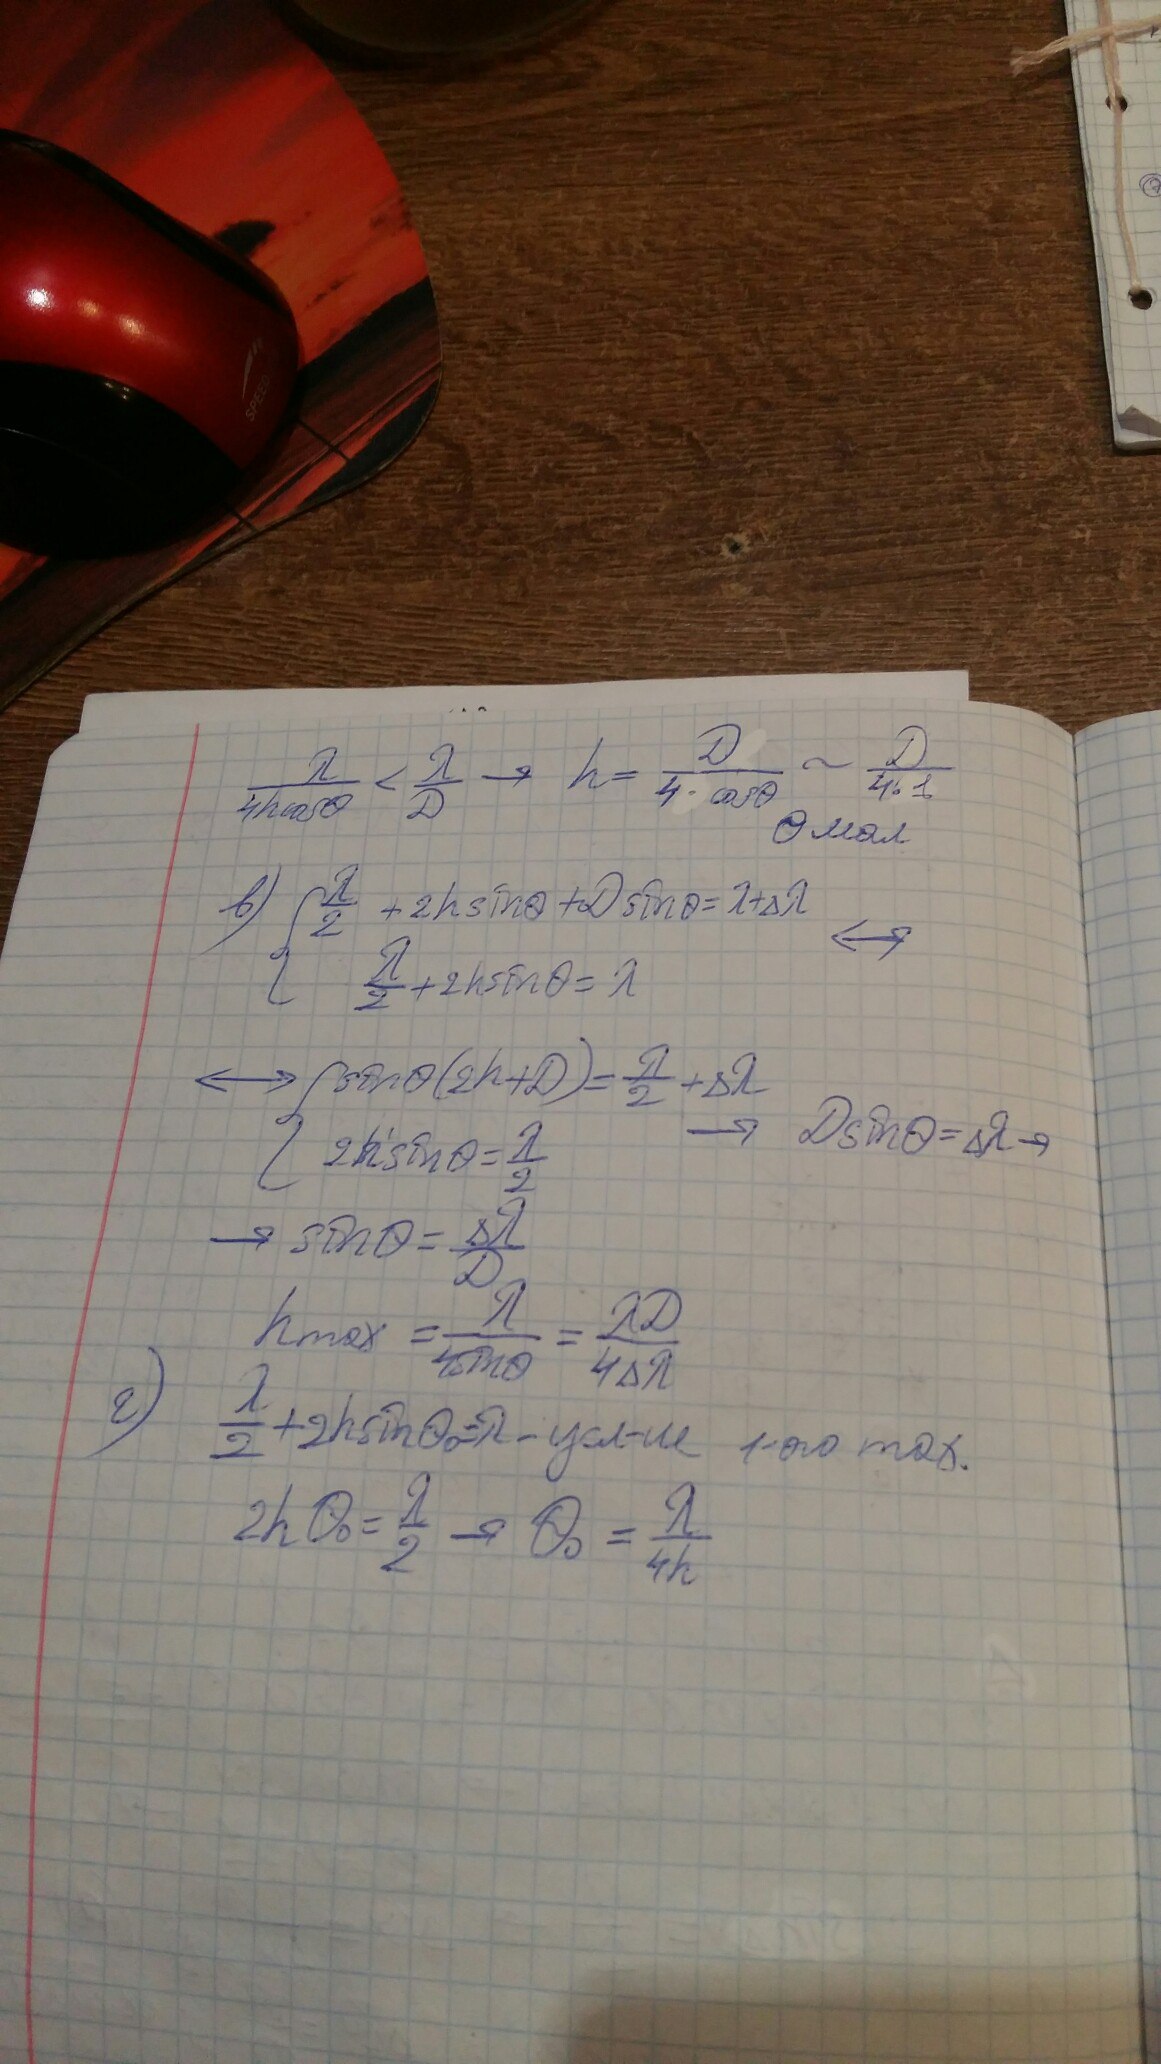 SPEED
λ/(4h cosθ) < λ/D → h = D/(4·cosθ) ~ D/(4·1)
θ мал
в) { λ/2 + 2h sinθ + D sinθ = λ+Δλ
λ/2 + 2h sinθ = λ ↔
↔ { sinθ(2h+D) = λ/2 + Δλ
2h sinθ = λ/2 → D sinθ = Δλ →
→ sinθ = Δλ/D
h max = λ/(4 sinθ) = λD/(4Δλ)
г) λ/2 + 2h sinθ₀ = λ - усл-ие 1-ого max.
2hθ₀ = λ/2 → θ₀ = λ/(4h)